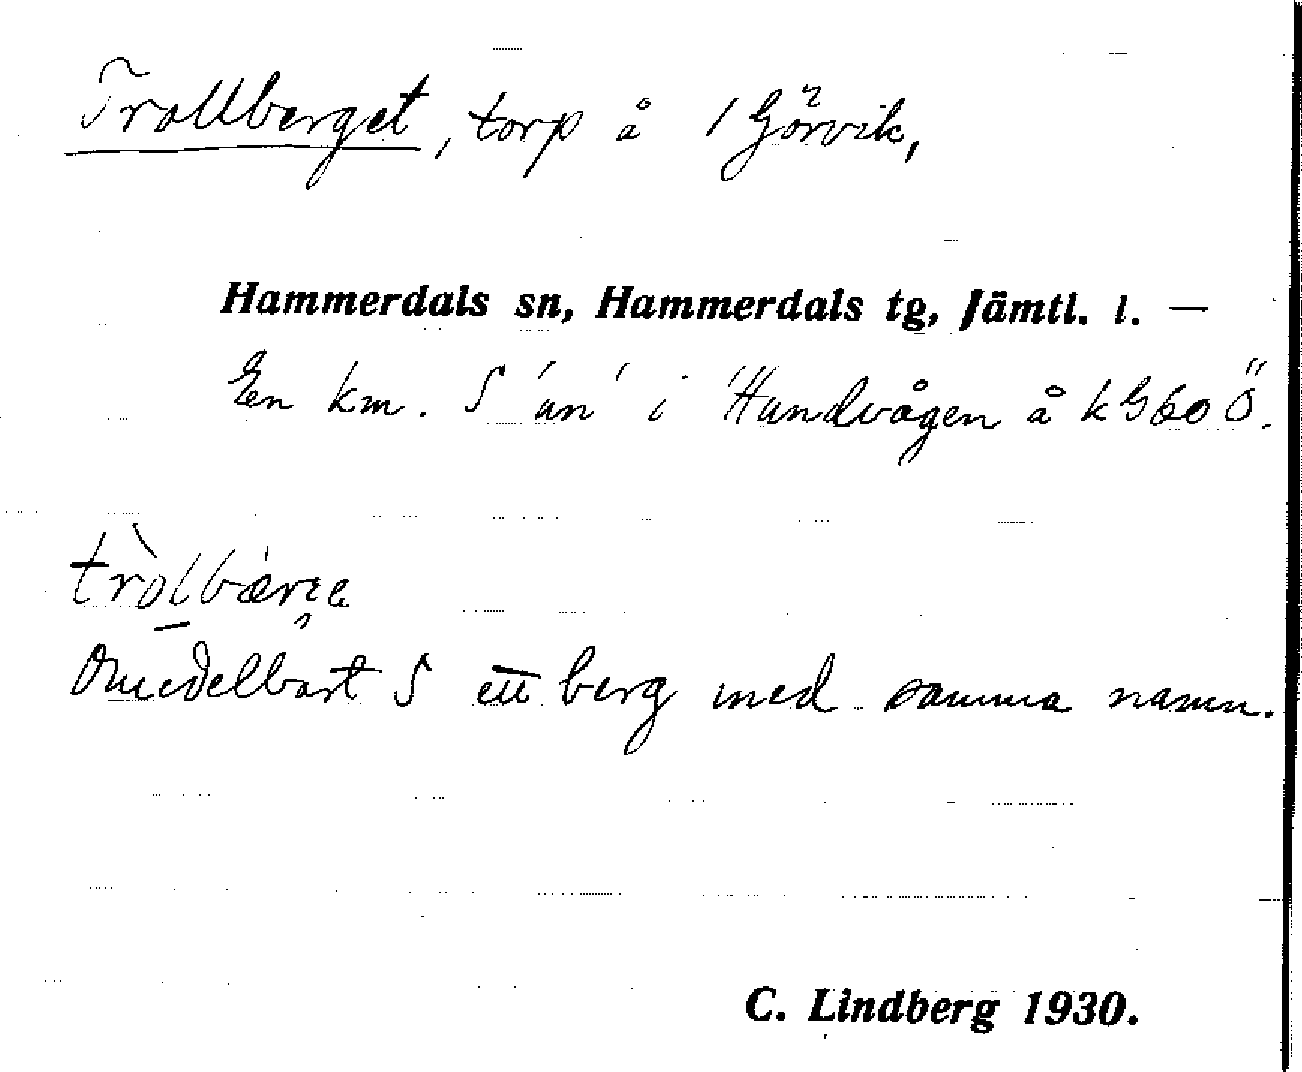 Trollberget, torp å 1 Görvik,
Hammerdals sn, Hammerdals tg, Jämtl. l. —
En km. S 'un' i 'Hundvågen å k G 60 Ö.
Omedelbart S ett berg med samma namn.
C. Lindberg 1930.